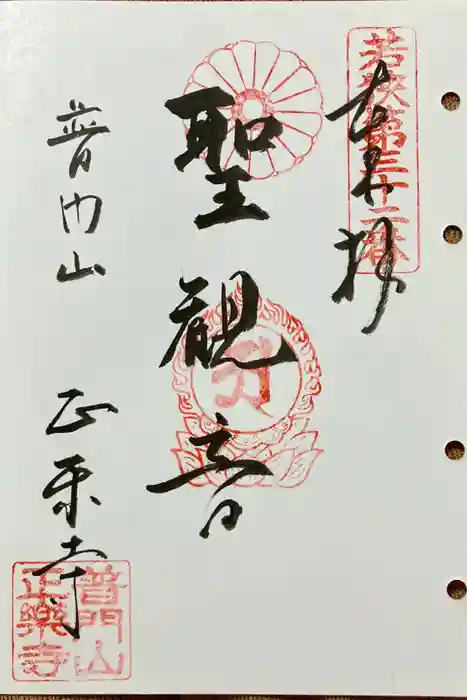 若狭第三十二番
奉拝
聖観音
普門山　正楽寺
普門山
正樂寺